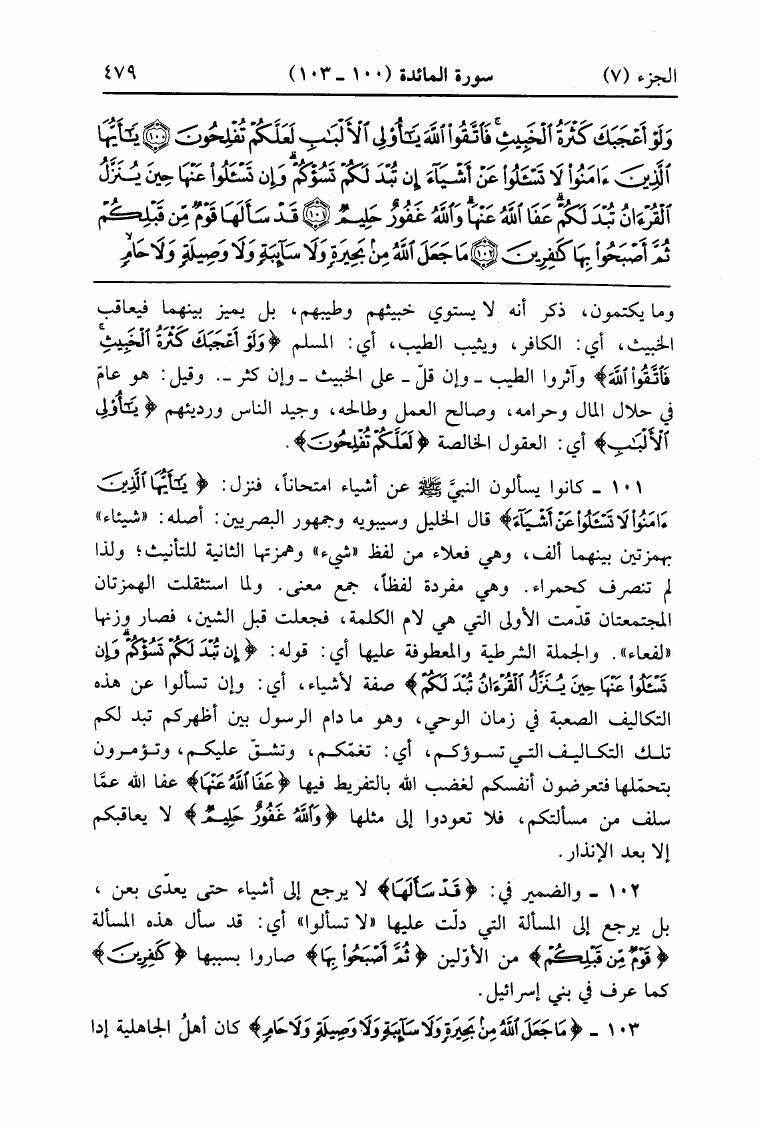 الجزء (٧) سورة المائدة (١٠٠ ـ ١٠٣) ٤٧٩
وَلَوْ أَعْجَبَكَ كَثْرَةُ ٱلْخَبِيثِۚ فَٱتَّقُوا۟ ٱللَّهَ يَـٰٓأُو۟لِى ٱلْأَلْبَـٰبِ لَعَلَّكُمْ تُفْلِحُونَ ١٠٠ يَـٰٓأَيُّهَا
ٱلَّذِينَ ءَامَنُوا۟ لَا تَسْـَٔلُوا۟ عَنْ أَشْيَآءَ إِن تُبْدَ لَكُمْ تَسُؤْكُمْ وَإِن تَسْـَٔلُوا۟ عَنْهَا حِينَ يُنَزَّلُ
ٱلْقُرْءَانُ تُبْدَ لَكُمْ عَفَا ٱللَّهُ عَنْهَاۗ وَٱللَّهُ غَفُورٌ حَلِيمٌ ١٠١ قَدْ سَأَلَهَا قَوْمٌ مِّن قَبْلِكُمْ
ثُمَّ أَصْبَحُوا۟ بِهَا كَـٰفِرِينَ ١٠٢ مَا جَعَلَ ٱللَّهُ مِنۢ بَحِيرَةٍ وَلَا سَآئِبَةٍ وَلَا وَصِيلَةٍ وَلَا حَامٍۙ
وما يكتمون، ذكر أنه لا يستوي خبيثهم وطيبهم، بل يميز بينهما فيعاقب
الخبيث، أي: الكافر، ويثيب الطيب، أي: المسلم ﴿وَلَوْ أَعْجَبَكَ كَثْرَةُ ٱلْخَبِيثِۚ
فَٱتَّقُوا۟ ٱللَّهَ﴾ وآثروا الطيب ـ وإن قلّ ـ على الخبيث ـ وإن كثر ـ. وقيل: هو عامّ
في حلال المال وحرامه، وصالح العمل وطالحه، وجيد الناس ورديئهم ﴿يَـٰٓأُو۟لِى
ٱلْأَلْبَـٰبِ﴾ أي: العقول الخالصة ﴿لَعَلَّكُمْ تُفْلِحُونَ﴾.
١٠١ ـ كانوا يسألون النبيَّ ﷺ عن أشياء امتحاناً، فنزل: ﴿يَـٰٓأَيُّهَا ٱلَّذِينَ
ءَامَنُوا۟ لَا تَسْـَٔلُوا۟ عَنْ أَشْيَآءَ﴾ قال الخليل وسيبويه وجمهور البصريين: أصله: «شيئاء»
بهمزتين بينهما ألف، وهي فعلاء من لفظ «شيء» وهمزتها الثانية للتأنيث؛ ولذا
لم تنصرف كحمراء. وهي مفردة لفظاً، جمع معنى. ولما استثقلت الهمزتان
المجتمعتان قدّمت الأولى التي هي لام الكلمة، فجعلت قبل الشين، فصار وزنها
«لفعاء». والجملة الشرطية والمعطوفة عليها أي: قوله: ﴿إِن تُبْدَ لَكُمْ تَسُؤْكُمْ وَإِن
تَسْـَٔلُوا۟ عَنْهَا حِينَ يُنَزَّلُ ٱلْقُرْءَانُ تُبْدَ لَكُمْ﴾ صفة لأشياء، أي: وإن تسألوا عن هذه
التكاليف الصعبة في زمان الوحي، وهو ما دام الرسول بين أظهركم تبد لكم
تلك التكاليف التي تسوؤكم، أي: تغمّكم، وتشقّ عليكم، وتؤمرون
بتحمّلها فتعرضون أنفسكم لغضب الله بالتفريط فيها ﴿عَفَا ٱللَّهُ عَنْهَا﴾ عفا الله عمَّا
سلف من مسألتكم، فلا تعودوا إلى مثلها ﴿وَٱللَّهُ غَفُورٌ حَلِيمٌ﴾ لا يعاقبكم
إلا بعد الإنذار.
١٠٢ ـ والضمير في: ﴿قَدْ سَأَلَهَا﴾ لا يرجع إلى أشياء حتى يعدّى بعن،
بل يرجع إلى المسألة التي دلّت عليها «لا تسألوا» أي: قد سأل هذه المسألة
﴿قَوْمٌ مِّن قَبْلِكُمْ﴾ من الأوّلين ﴿ثُمَّ أَصْبَحُوا۟ بِهَا﴾ صاروا بسببها ﴿كَـٰفِرِينَ﴾
كما عرف في بني إسرائيل.
١٠٣ ـ ﴿مَا جَعَلَ ٱللَّهُ مِنۢ بَحِيرَةٍ وَلَا سَآئِبَةٍ وَلَا وَصِيلَةٍ وَلَا حَامٍ﴾ كان أهلُ الجاهلية إذا